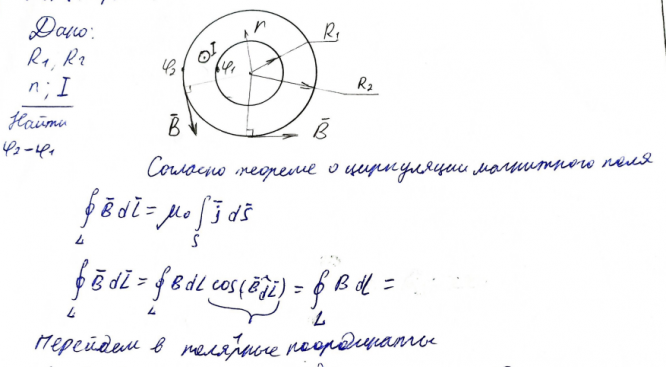 Дано:
R₁, R₂
n; I
Найти
φ₂-φ₁
n
I
R₁
φ₂
φ₁
R₂
B̄
B̄
Согласно теореме о циркуляции магнитного поля
∮_L B̄ dL̄ = μ₀ ∫_S j̄ dS̄
∮_L B̄ dL̄ = ∮_L B dL cos(B̄^dL̄) = ∮_L B dl =
1
Перейдем в полярные координаты